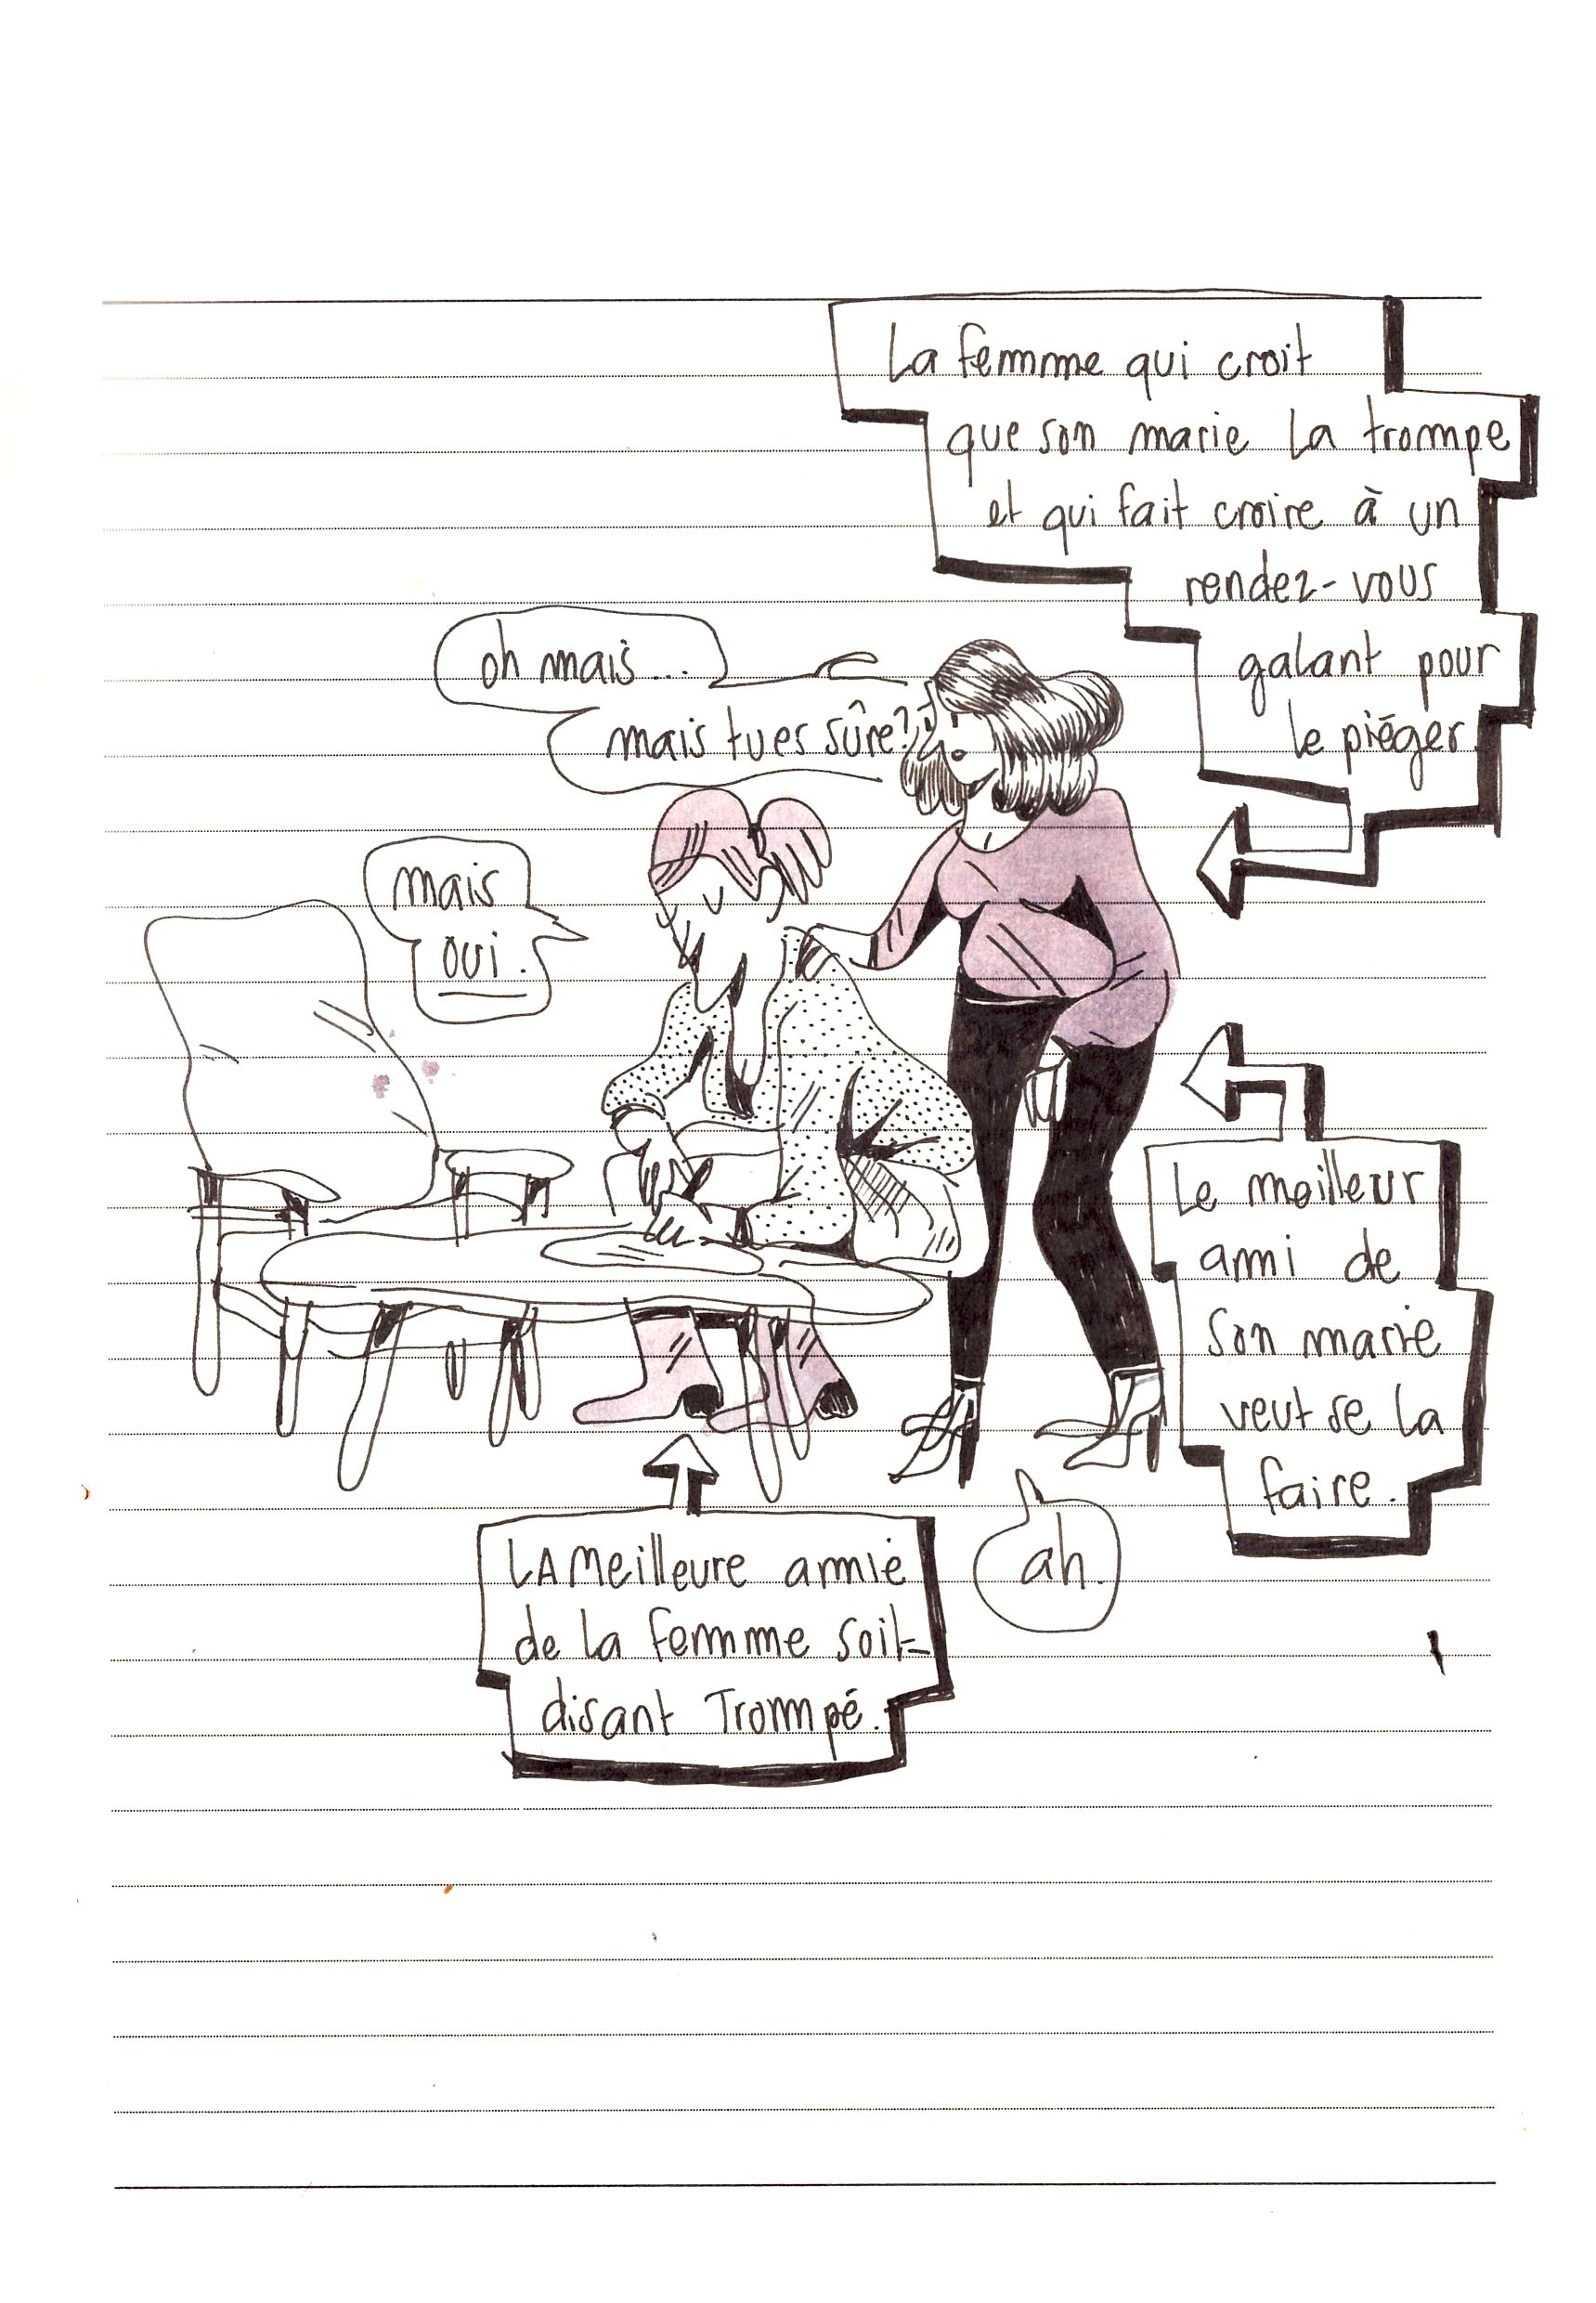 La femme qui croit
que son marie la trompe
et qui fait croire à un
rendez-vous
galant pour
le piéger.
oh mais...
mais tu es sûre?
mais
oui.
Le meilleur
ami de
son marie
veut se la
faire.
ah.
LA Meilleure amie
de la femme soit-
disant Trompé.